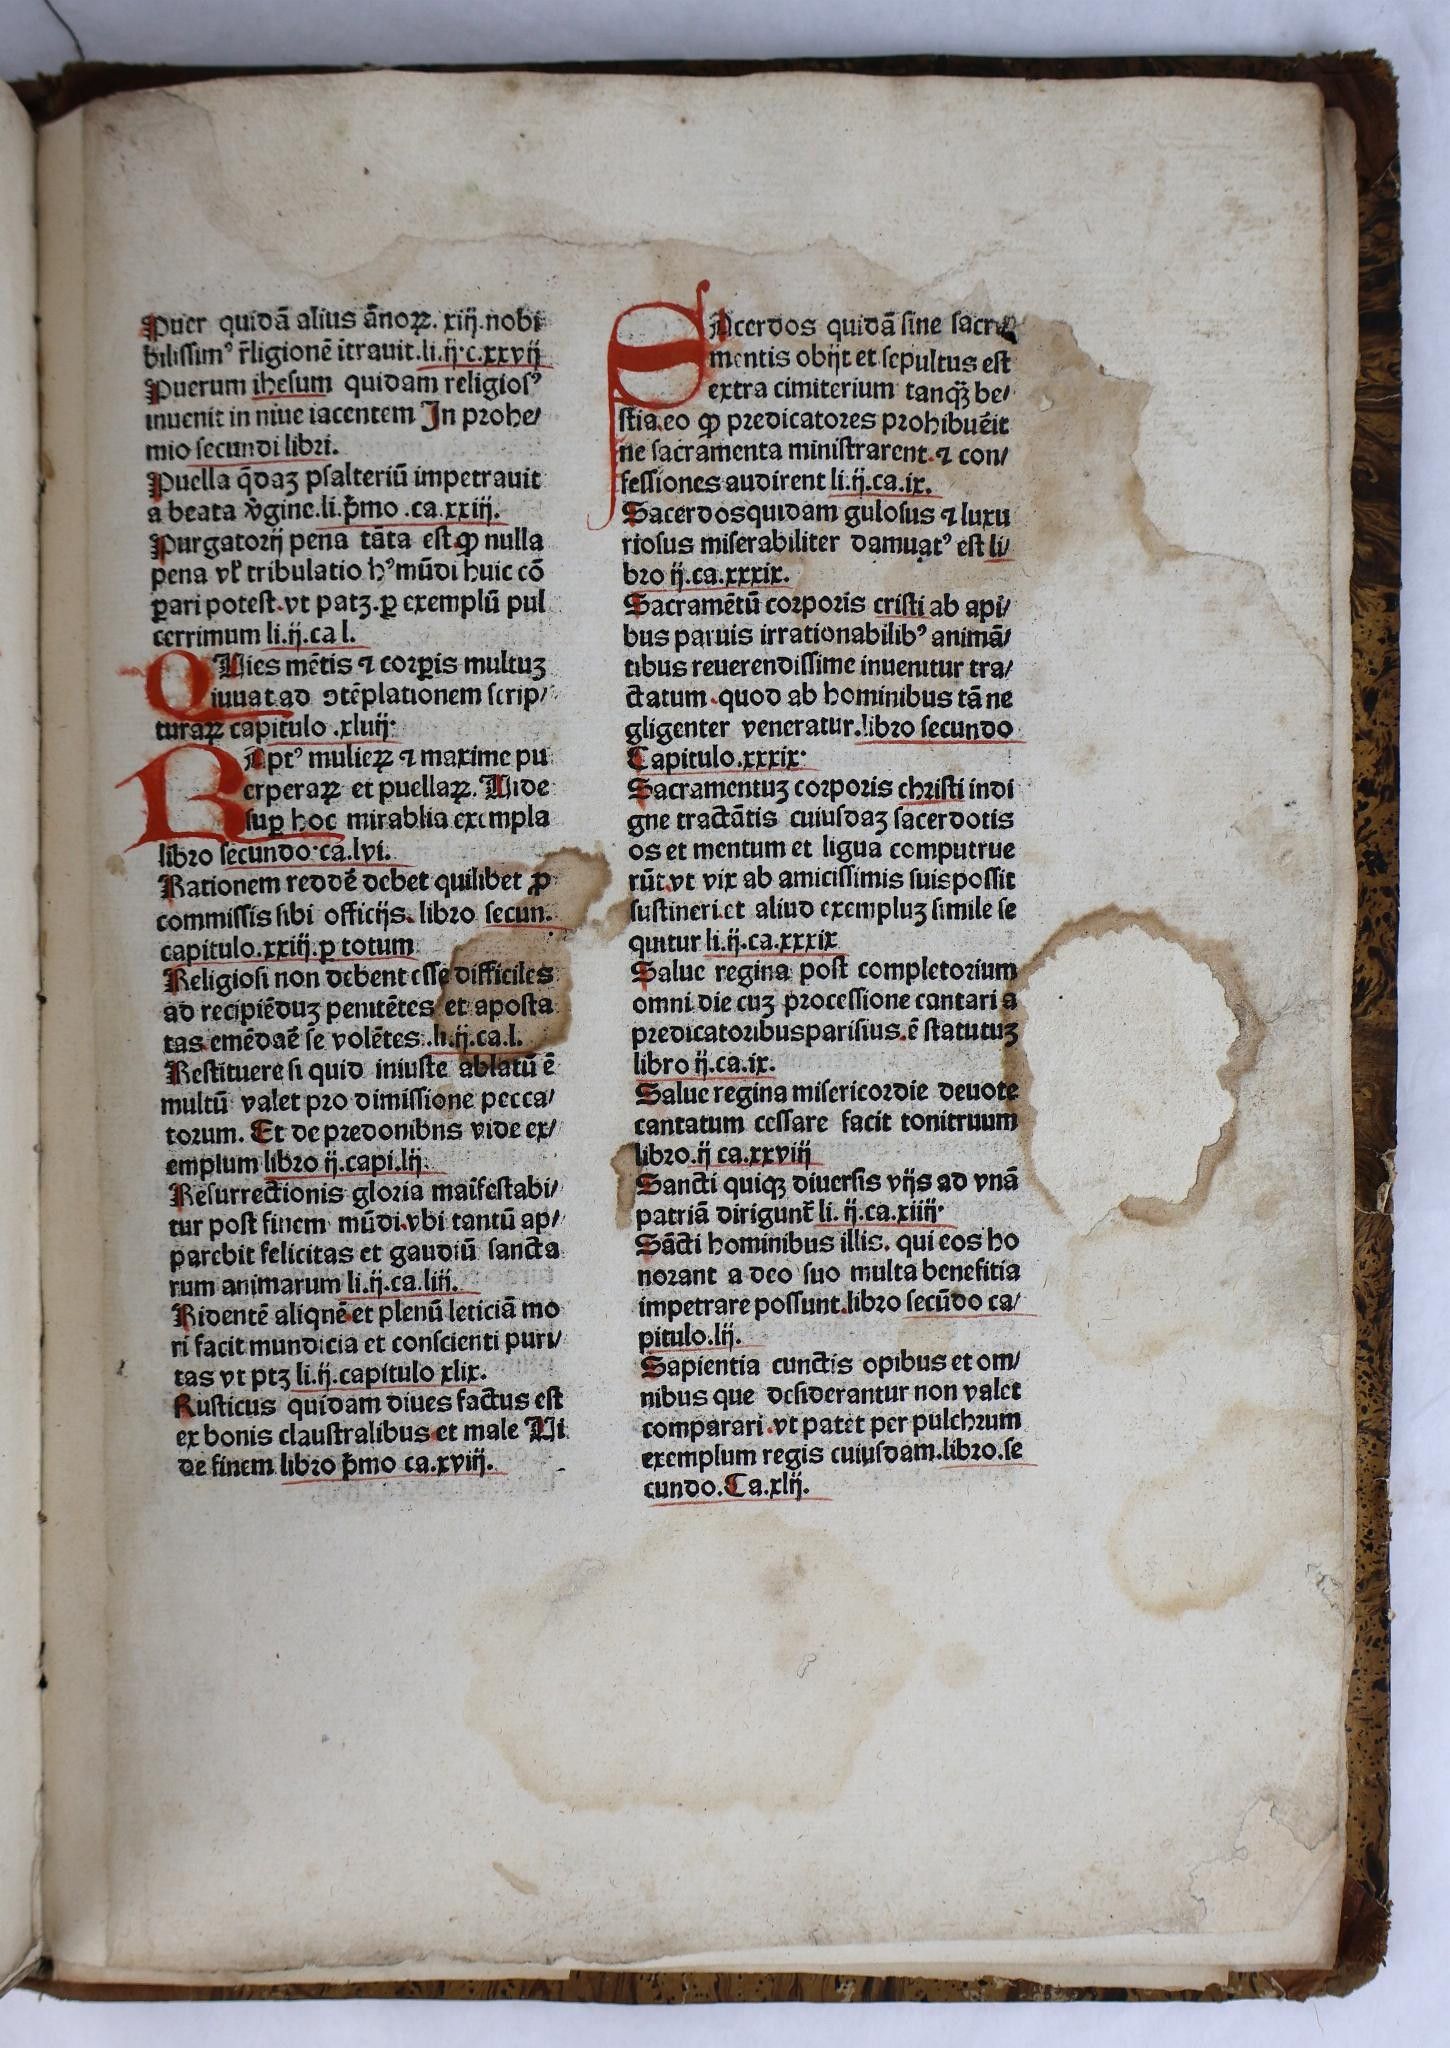 Puer quidā alius ānoꝝ. xiij. nobi
bilissimꝰ r̄ligionē ītrauit. li. ij. c. xxvij
Puerum ihesum quidam religiosꝰ
inuenit in niue iacentem In prohe/
mio secundi libri.
Puella q̄daʒ psalteriū impetrauit
a beata v̄gine. li. p̄mo . ca. xxiij.
Purgatorij pena tāta est ꝙ nulla
pena vl̄ tribulatio hꝰ mūdi huic cō
ꝑari potest. vt patʒ. ꝑ exemplū pul
cerrimum li. ij. ca l.
QUies mētis ⁊ corꝑis multuʒ
iuuat ad ↄtēplationem scrip/
turaꝝ capitulo .xluij.
RAptꝰ mulieꝝ ⁊ maxime pu
erperaꝝ et puellaꝝ. Uide
suꝑ hoc mirablia exempla
libro secundo. ca. lvi.
Rationem reddē debet quilibet ꝓ
commissis sibi officijs. libro secun.
capitulo. xxiij. ꝑ totum
Religiosi non debent esse difficiles
ad recipiēduʒ penitētes et aposta
tas emēdaē se volētes. .li. ij. ca. l.
Restituere si quid iniuste ablatū ē
multū valet pro dimissione pecca/
torum. Et de predonibns vide ex/
emplum libro ij. capi. lij.
Resurrectionis gloria maīfestabi/
tur post finem mūdi. vbi tantū ap/
parebit felicitas et gaudiū sancta
rum animarum li. ij. ca. liij.
Ridentē aliqnē et plenū leticiā mo
ri facit mundicia et conscienti puri/
tas vt ptʒ li. ij. capitulo xlix.
Rusticus quidam diues factus est
ex bonis claustralibus et male Ui
de finem libro p̄mo ca. xviij.
SAcerdos quidā sine sacra
mentis obijt et sepultus est
extra cimiterium tanqꝫ̄ be/
stia. eo ꝙ predicatores prohibuēit
ne sacramenta ministrarent. ⁊ con/
fessiones audirent li. ij. ca. ix.
Sacerdosquidam gulosus ⁊ luxu
riosus miserabiliter damuatꝰ est li/
bro ij. ca. xxxix.
Sacramētū corporis cristi ab api/
bus paruis irrationabilibꝰ animā/
tibus reuerendissime inuenitur tra/
ctatum. quod ab hominibus tā ne
gligenter veneratur. libro secundo
Capitulo. xxxix.
Sacramentuʒ corporis christi indi
gne tractātis cuiusdaʒ sacerdotis
os et mentum et ligua computrue
rūt. vt vix ab amicissimis suis possit
sustineri. et aliud exempluʒ simile se
quitur li. ij. ca. xxxix
Salue regina post completorium
omni die cuʒ processione cantari a
predicatoribusparisius. ē statutuʒ
libro ij. ca. ix.
Salue regina misericordie deuote
cantatum cessare facit tonitruum
libro. ij ca. xxviij
Sancti quiqꝫ diuersis vijs ad vnā
patriā dirigunt̄ li. ij. ca. xiiij.
Sācti hominibus illis. qui eos ho
norant a deo suo multa benefitia
impetrare possunt. libro secūdo ca/
pitulo. lij.
Sapientia cunctis opibus et om/
nibus que desiderantur non valet
comparari. vt patet per pulchrum
exemplum regis cuiusdam. libro. se
cundo. Ca. xlij.